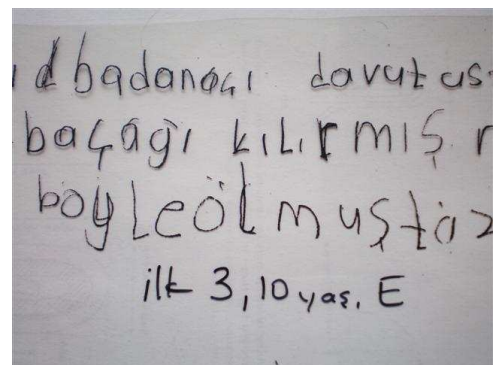 d badanacı davut us
baçağı kılırmış r
böyleölmuştöz
ilk 3, 10 yaş, E